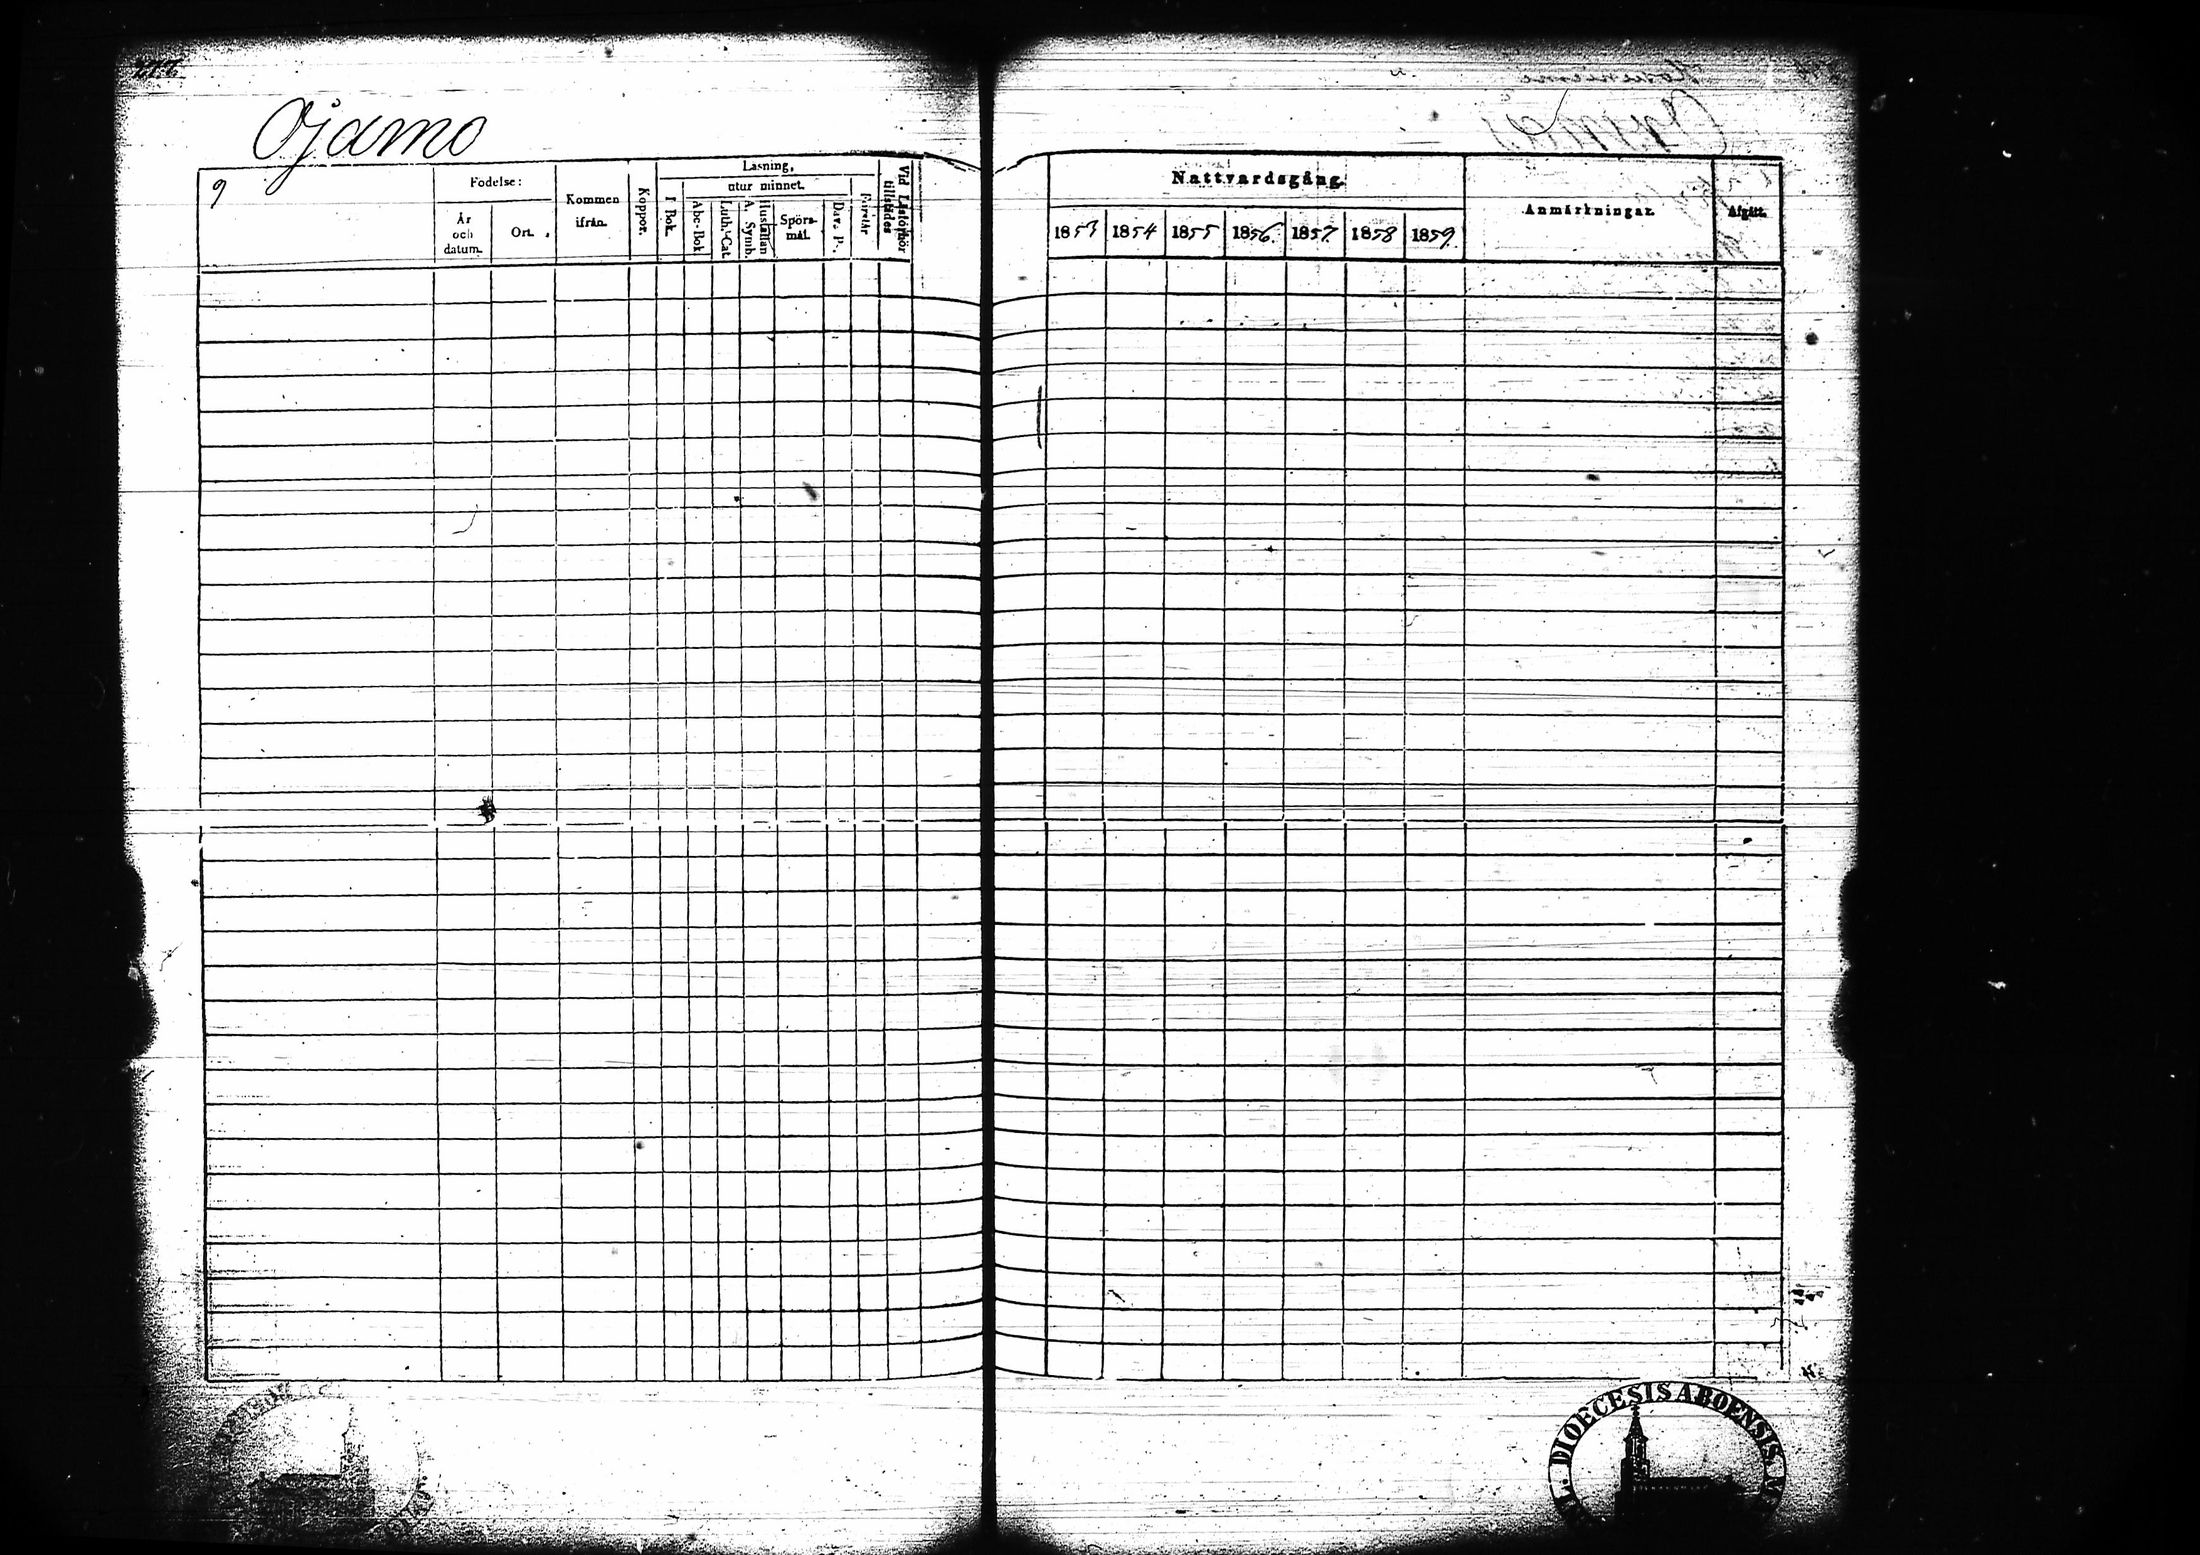 Ojamo
Födelse:
Kommen ifrån.
Koppor.
Läsning,
utur minnet.
Vid Läsförhör tillstädes
År och datum.
Ort.
I Bok.
Abc-Bok
Luth. Cat.
Hustaflan A. Symb.
Spörsmål.
Dav. Ps.
Förstår
Nattvardsgång.
Anmärkningar.
Afgått.
1853 1854 1855 1856. 1857. 1858 1859.
DIOECESIS ABOENSIS